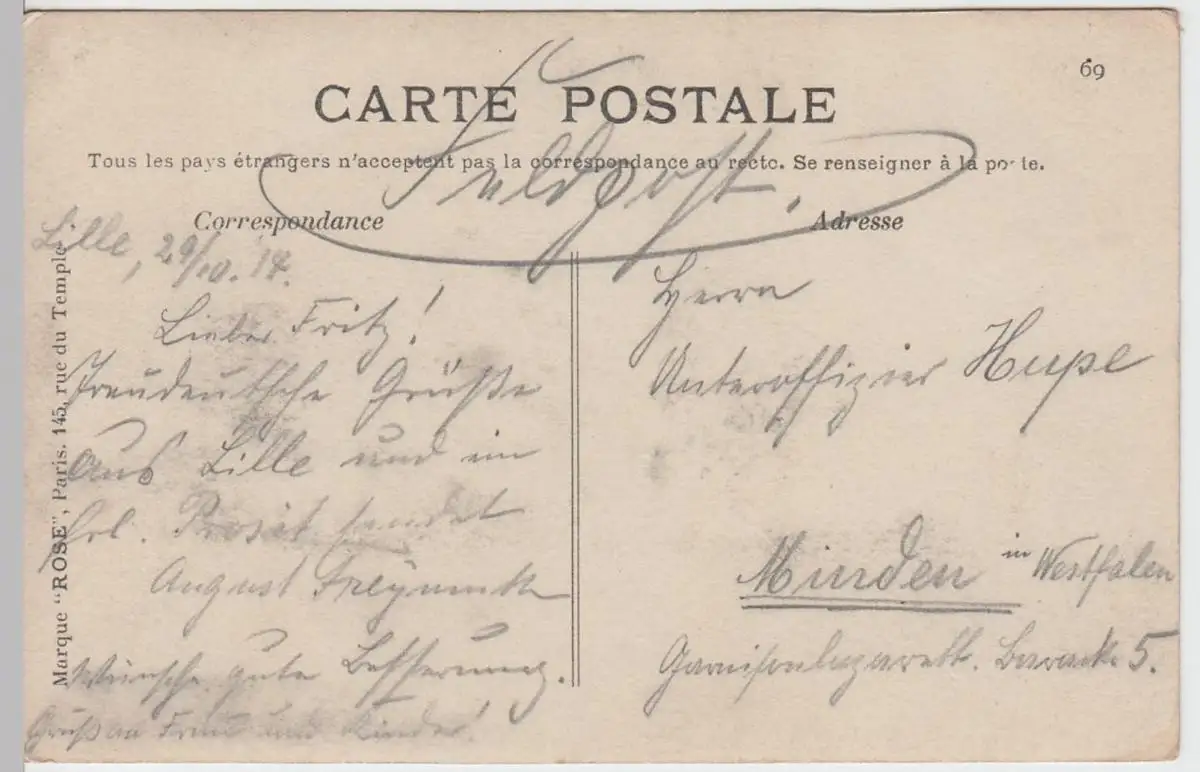 69
CARTE POSTALE
Tous les pays étrangers n'acceptent pas la correspondance au recto. Se renseigner à la poste.
Feldpost.
Correspondance
Adresse
Lille, 29/10. 14.
Lieber Fritz!
Treudeutsche Grüße
aus Lille und ein
frl. Prosit sendet
August
Wünsche gute Besserung.
Gruß an Frau und Kinder!
Herrn
Unteroffizier Hupe
Minden in Westfalen
Garnisonlazarett. Baracke 5.
Marque "ROSE", Paris. 145, rue du Temple